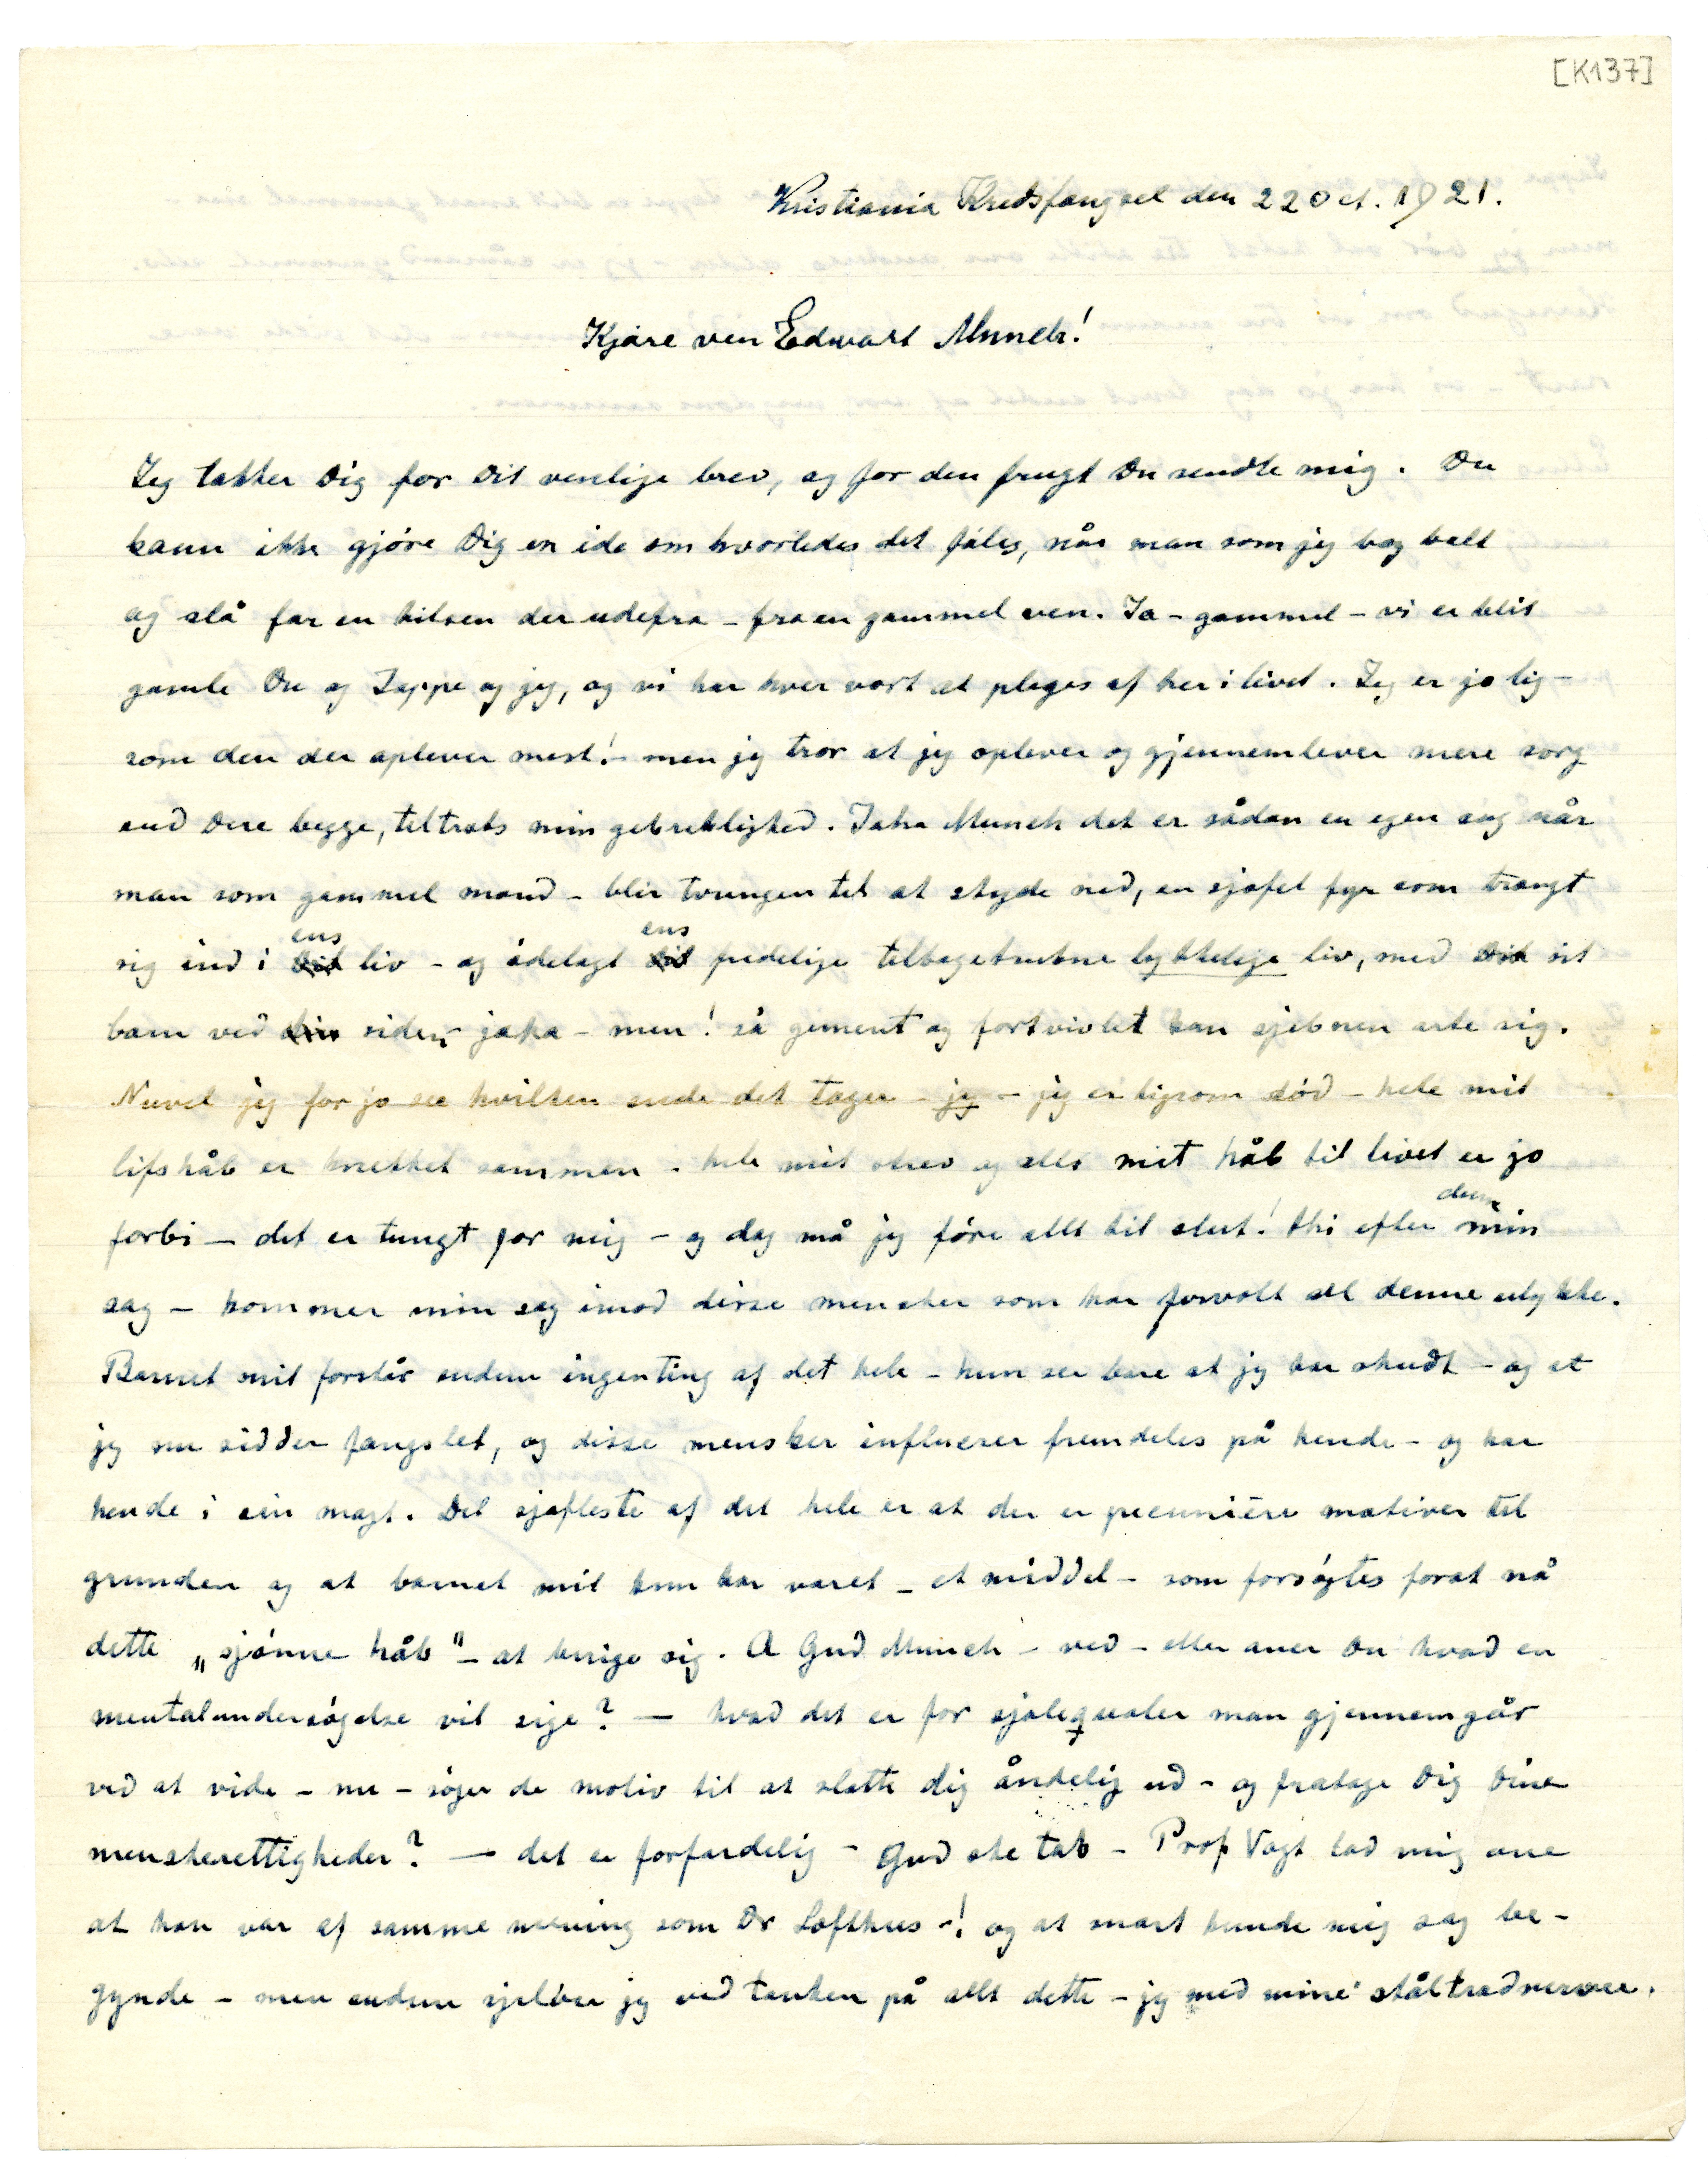 [K137]
Kristiania Kredsfængsel den 22 Oct. 1921.
Kjære ven Edwart Munch!
Jeg takker Dig for Dit venlige brev, og for den frugt Du sendte mig. Du
kann ikke gjøre Dig en ide om hvorledes det føles, når man som jeg bag bolt
og slå får en hilsen der udefra – fra en gammel ven. Ja – gammel – vi er blit
gamle Du og Jappe og jeg, og vi har hver vort at pleges af her i livet. Jeg er jo lig–
som den der oplever mest! – men jeg tror at jeg oplever og gjennemlever mere sorg
end Dere begge, tiltrots min gebreklighed. Jaha Munch det er sådan en egen sag når
man som gammel mand – blir tvungen til at skyde ned, en sjofel fyr som trængt
sig ind i Dit ens liv – og ødelagt Dit ens fredelige tilbagetrukne lykkelige liv, med Dit sit
barn ved din siden, jaha – men! så gement og fortvivlet kan sjebnen arte sig.
Nuvel jeg for jo see hvilken ende det tager – jeg – jeg er ligsom død – hele mit
lifshåb er knekket sammen – hele mit strev og allt mit håb til livet er jo
forbi – det er tungt for mig – og dog må jeg føre allt til slut! thi efter denne min
sag – kommer min sag imod disse mensker som har forvolt al denne ulykke.
Barnet mit forstår endnu ingenting af det hele – hun ser bare at jeg har skudt – og at
jeg nu sidder fængslet, og disse mensker influerer fremdeles på hende – og har
hende i sin magt. Det sjofleste af det hele er at der er pecuniære motiver til
grunden og at barnet mit kun har været – et middel – som forsøgtes forat nå
dette „sjønne håb" – at berige sig. A Gud Munch – ved – eller aner Du hvad en
mentalundersøgelse vil sige? — hvad det er for sjælequaler man gjennemgår
ved at vide – nu – søger de motiv til at slette dig åndelig ud – og fratage Dig Dine
menskerettigheder? — det er forfærdelig – Gud ske tak – Prof Vogt lod mig ane
at han var af samme mening som Dr Lofthus –! og at snart kunde mig sag be–
gynde – men endnu sjelver jeg ved tanken på allt dette – jeg med mine ståltrådnerver.